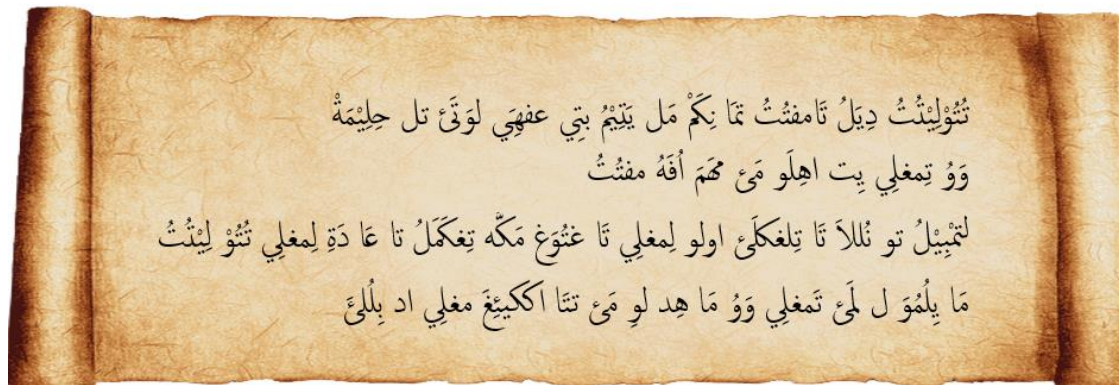 تُتُوْلِيْتُتُ دِيَلُ تَامفتُتُ تمَا نِكَمْ مَل يَتِيْمُ بتِي عفهَِي لوَتَئ تل حِلِيْمَةْ
وَوُ تِمغلِي يِت اهِلَو مَئ مهَمَ اُفَهُ مفتُتُ
لتمْبِيْلُ تو نُللاَ تَا تِلغكلَئ اولو لِمغلِي تَا غتُوَغ مَكّه تِغكَمَلُ تا عَا دَةِ لِمغلِي تُتُوْ لِيْتُتُ
مَا يِلُمُوَ ل لَمئ تَمغلِي وَوُ مَا هِد لوِ مَئ تتَا اككيئِغَ مغلِي اد بِلُلئَ